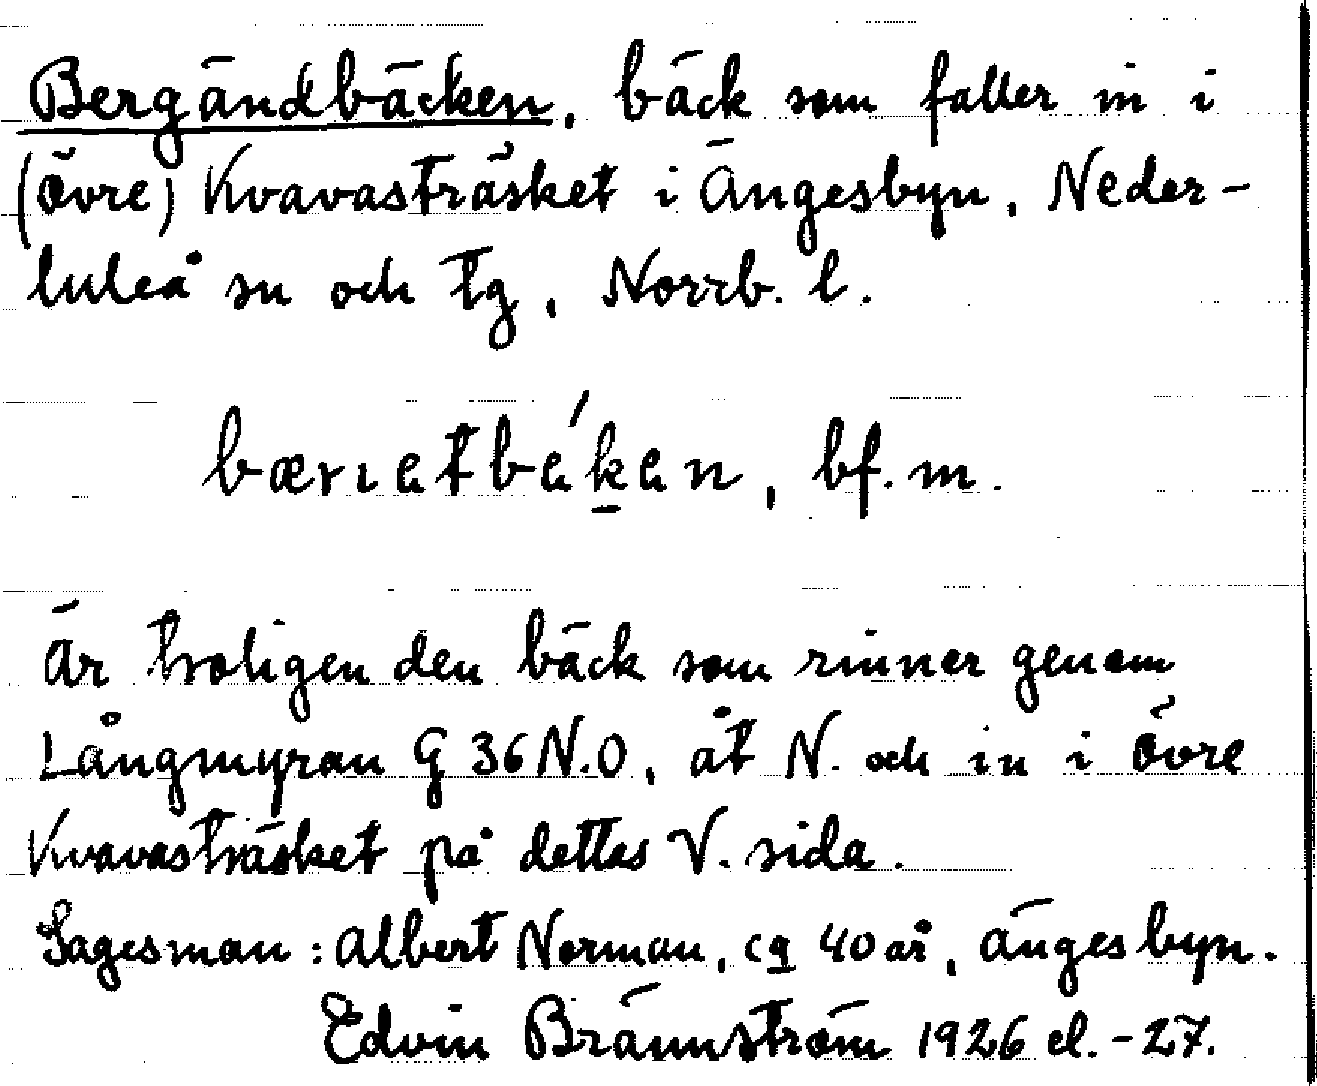 Bergändbäcken, bäck som faller in i
(övre) Kvavasträsket i Ängesbyn, Neder-
luleå sn och tg, Norrb. l.
bærıetbékən, bf. m.
Är troligen den bäck som rinner genom
Långmyran G 36 N.O, åt N. och in i övre
Kvavasträsket på dettas V. sida.
Sagesman: Albert Norman, ca 40 år, Ängesbyn.
Edvin Brännström 1926 el. -27.